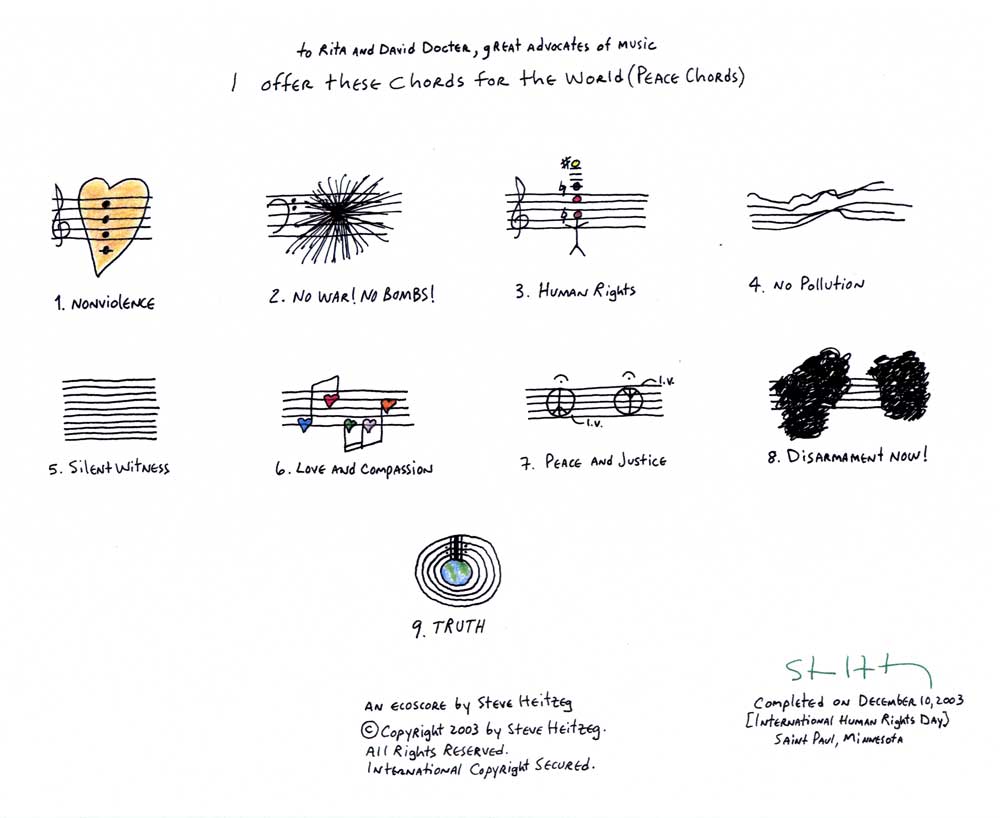 to Rita and David Docter, great advocates of music
I offer these chords for the world (Peace Chords)
1. Nonviolence
2. No War! No Bombs!
3. Human Rights
4. No Pollution
l.v.
l.v.
5. Silent Witness
6. Love and Compassion
7. Peace and Justice
8. Disarmament Now!
9. Truth
An ecoscore by Steve Heitzeg
© Copyright 2003 by Steve Heitzeg.
All Rights Reserved.
International Copyright Secured.
Completed on December 10, 2003
[International Human Rights Day]
Saint Paul, Minnesota